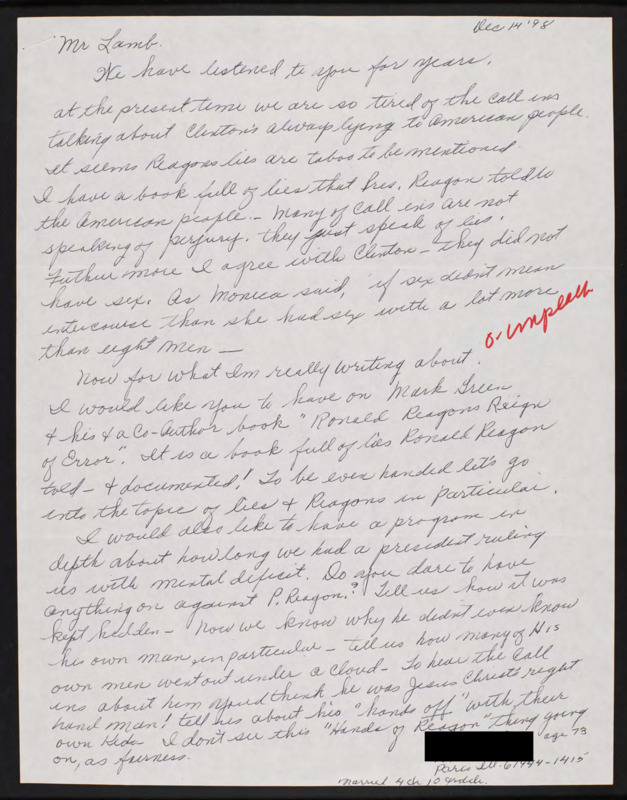 Dec 14 '98
Mr Lamb.
We have listened to you for years.
at the present time we are so tired of the call ins
talking about Clinton's always lying to American people.
it seems Reagons lies are taboo to be mentioned.
I have a book full of lies that Pres. Reagon told to
the American people. - Many of call ins are not
speaking of perjury. they just speak of lies.
Futher more I agree with Clinton - they did not
have sex. As Monica said, if sex didn't mean
intercourse than she had sex with a lot more
than eight men -
o-impeach
Now for what Im really writing about.
I would like you to have on Mark Green
& his & a Co-Author book "Ronald Reagons Reign
of Error". It is a book full of lies Ronald Reagon
told - & documented! To be even handed let's go
into the topic of lies & Reagons in particular.
I would also like to have a program in
depth about how long we had a president ruling
us with mental deficit. Do you dare to have
anything on against P. Reagon.? Tell us how it was
kept hidden - Now we know why he didnt even know
his own man, in particular - tell us how many of His
own men went out under a cloud - To hear the Call
ins about him you'd think he was Jesus Christs right
hand man! tell us about his "hands off" with their
own Kids. I don't see this "Hands of Reagon" thing going
on, as fairness.
age 73
Paris Ill. 61944-1415
Married 4 ch 10 Grdch.